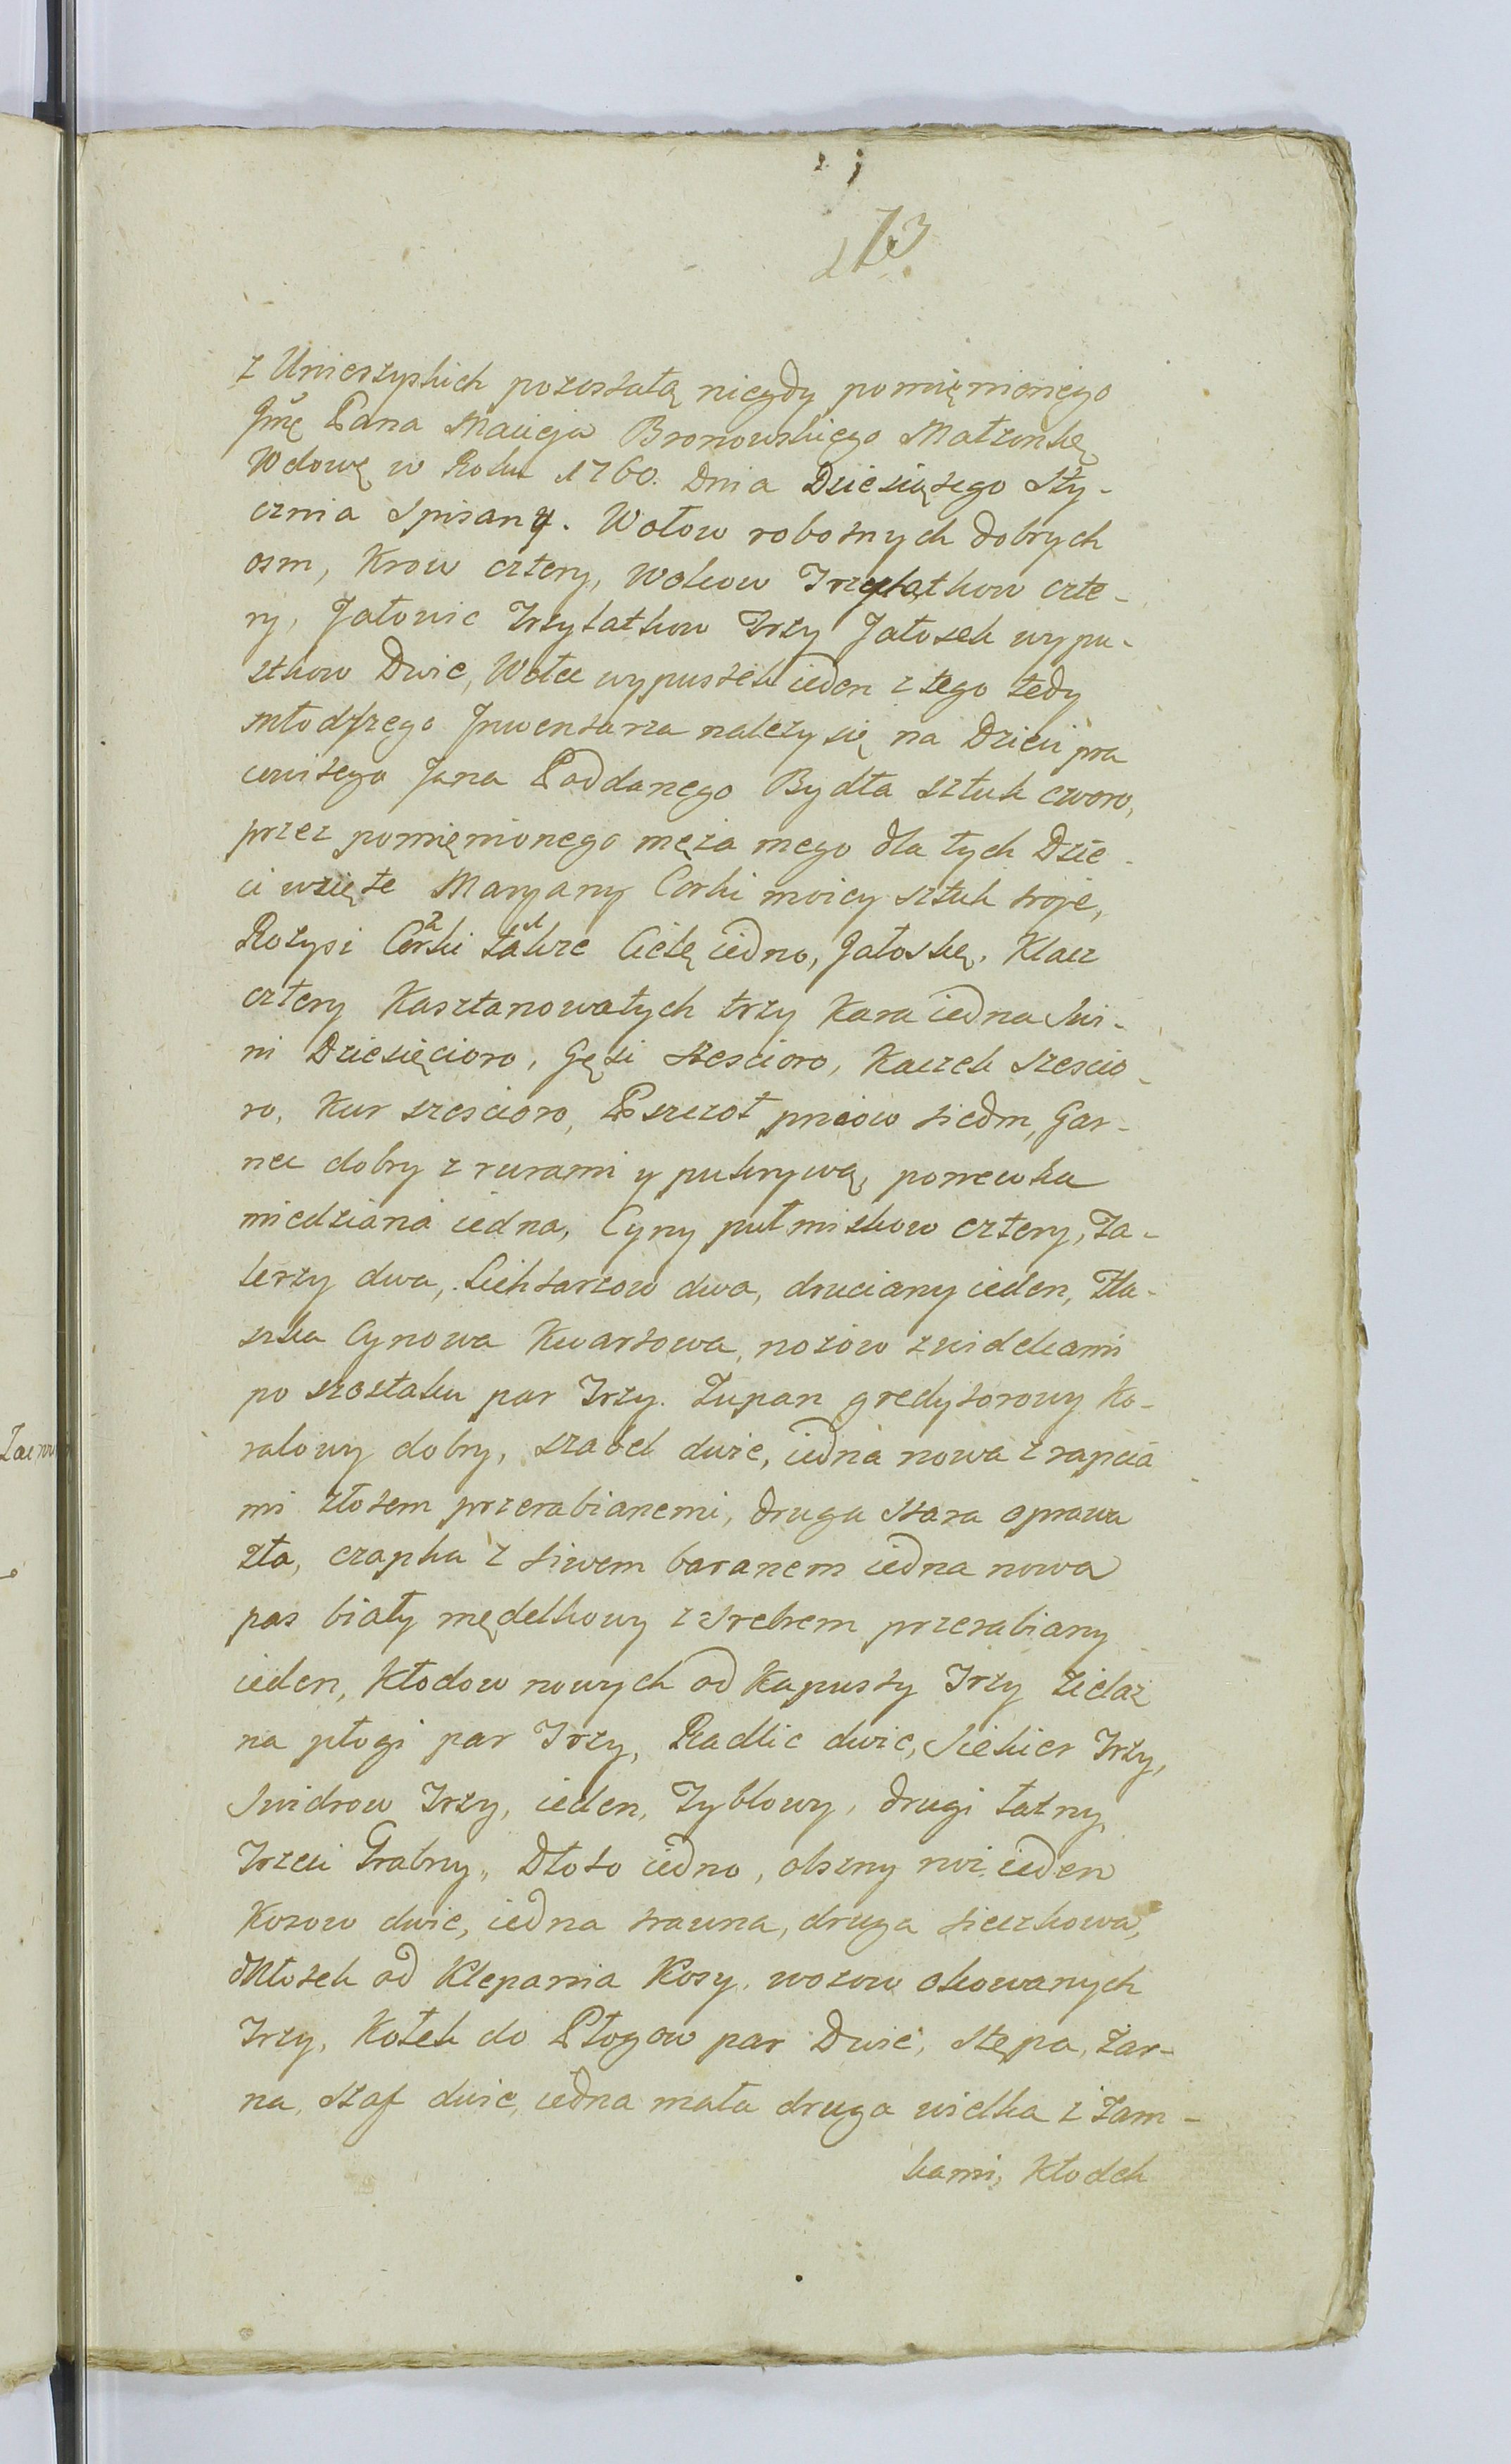 173
z Unieszyskich pozostałą niegdy pomięnionego
Jmę Pana Macieja Bronowskiego Małżonkę
Wdowę w Roku 1760. Dnia Dziesiątego Sty-
cznia Spisany. Wołow robotnych dobrych
osm, Krow cztery, Wołcow Trzylatkow czte-
ry, Jałowic Trzylatkow Trzy Jałoszek wypu-
stkow Dwie, Wołec wypustek ieden z tego tedy
młodszego Inwentarza nalezy się na Dzieci pra
cowitego Jana Poddanego Bydła sztuk czworo,
przez pomięnionego męża mego dla tych Dzie-
ci wzięte Maryany Corki moiey sztuk troje,
Rozysi Corki także Cielę iedno, Jałoskę, Klacz
cztery Kasztanowatych trzy Kara iedna Swi-
ni Dziesięcioro, Gęsi szescioro, Kaczek szescio-
ro, Kur szescioro, Pszczoł pniow siedm, Gar-
nec dobry z rurami y pukrywą, ponewka
miedziana iedna, Cyny pułmiskow cztery, Ta-
lerzy dwa, Lichtarzow dwa, druciany ieden, Fla-
szka Cynowa Kwartowa, nozow z widelcami
po szostaku par Trzy. Zupan gredytorowy Ko-
ralowy dobry, szabel dwie, iedna nowa z rapcia
mi złotem przerabianemi, druga stara oprawa
zła, czapka z siwem baranem iedna nowa
pas biały mędelkowy z srebrem przerabiany
ieden, Kłodow nowych od Kapusty Trzy Zielaz
na pługi par Trzy, Radlic dwie, Siekier Trzy,
Swidrow Trzy, ieden, Tyblowy, drugi łatny,
Trzeci Grabny, Dłoto iedno, ieden
Kosow dwie, iedna trawna, druga sieczkowa,
Młotek od Klepania Kosy. wozow okowanych
Trzy, Kołek do Płogow par Dwie, Stępa, Zar-
na, szaf dwie, iedna mała druga wielka z Zam-
kami, Kłodek